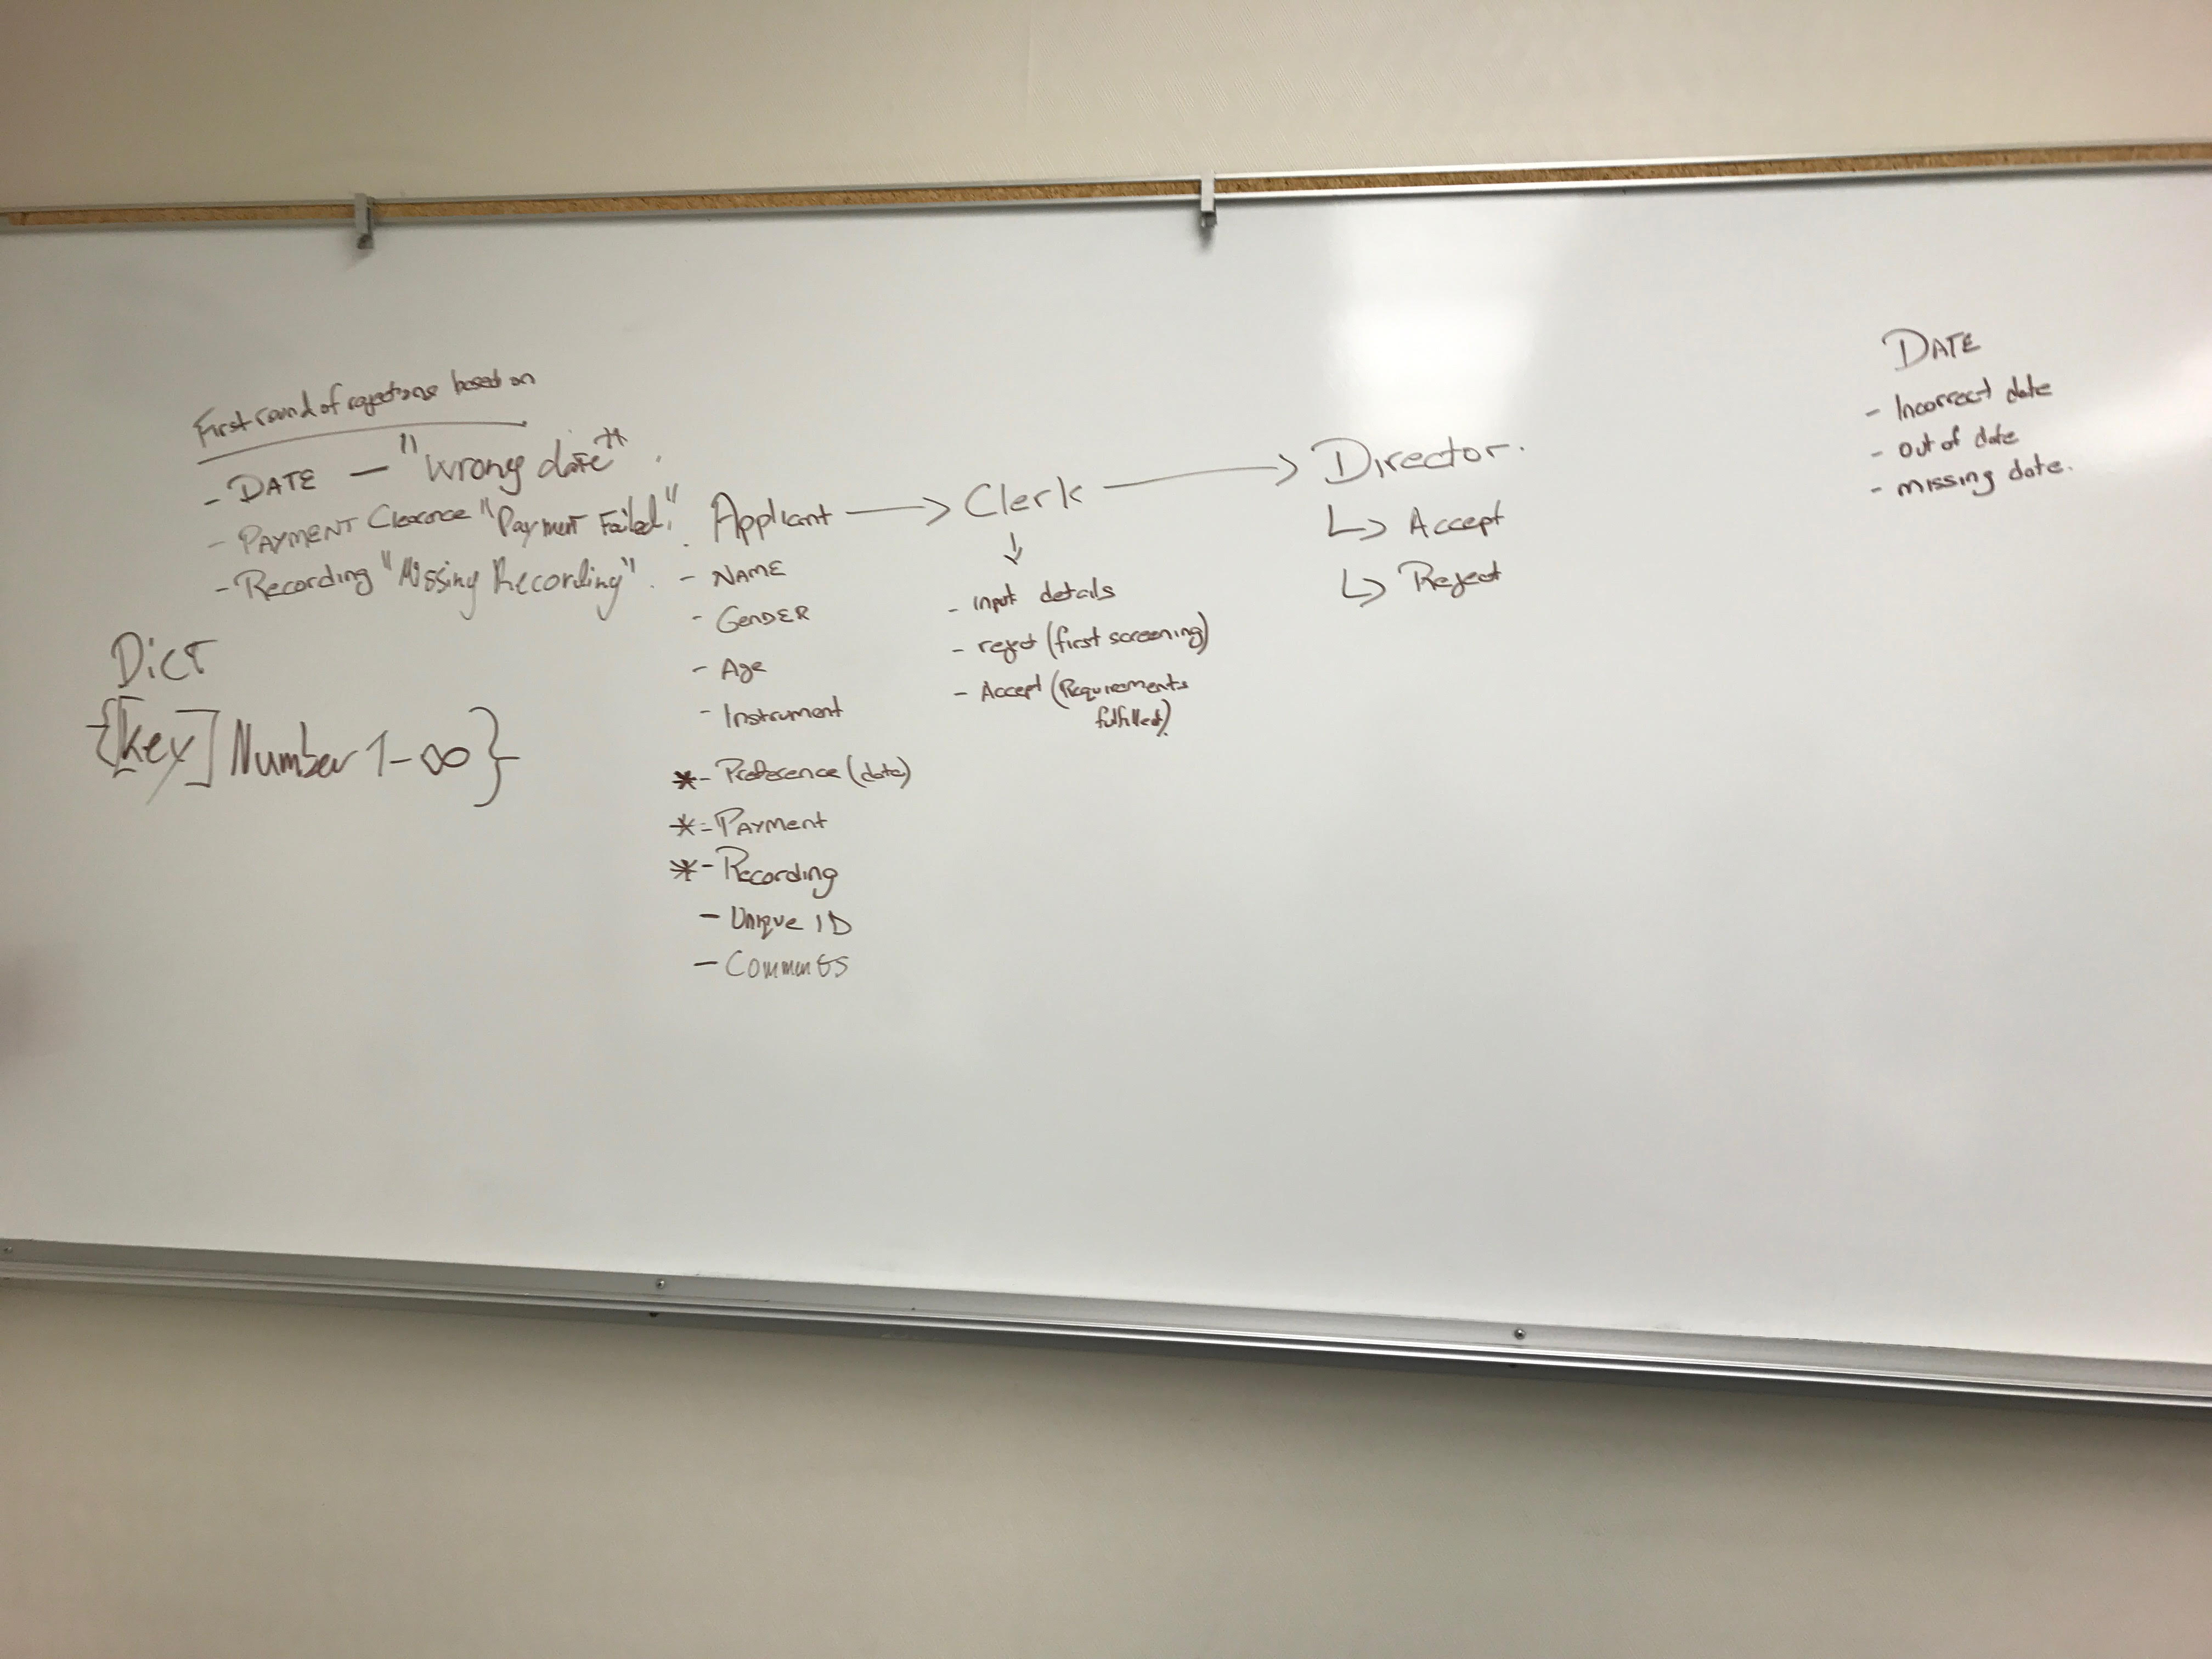 First round of rejections based on
- DATE — "wrong date".
- PAYMENT Clearance "Payment Failed".
- Recording "Missing Recording".
Dict
{[key] Number 1-∞}
Applicant → Clerk → Director.
- NAME
- GENDER
- Age
- Instrument
*- Preference (date)
*= Payment
*- Recording
- Unique ID
- Comments
↓
- Input details
- reject (first screening)
- Accept (Requirements
fulfilled)
↳ Accept
↳ Reject
DATE
- Incorrect date
- out of date
- missing date.